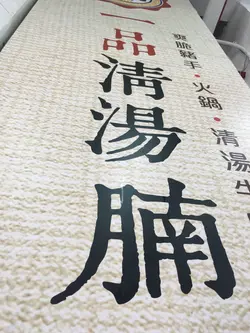 一品清湯腩
爽脆豬手·火鍋·清湯牛